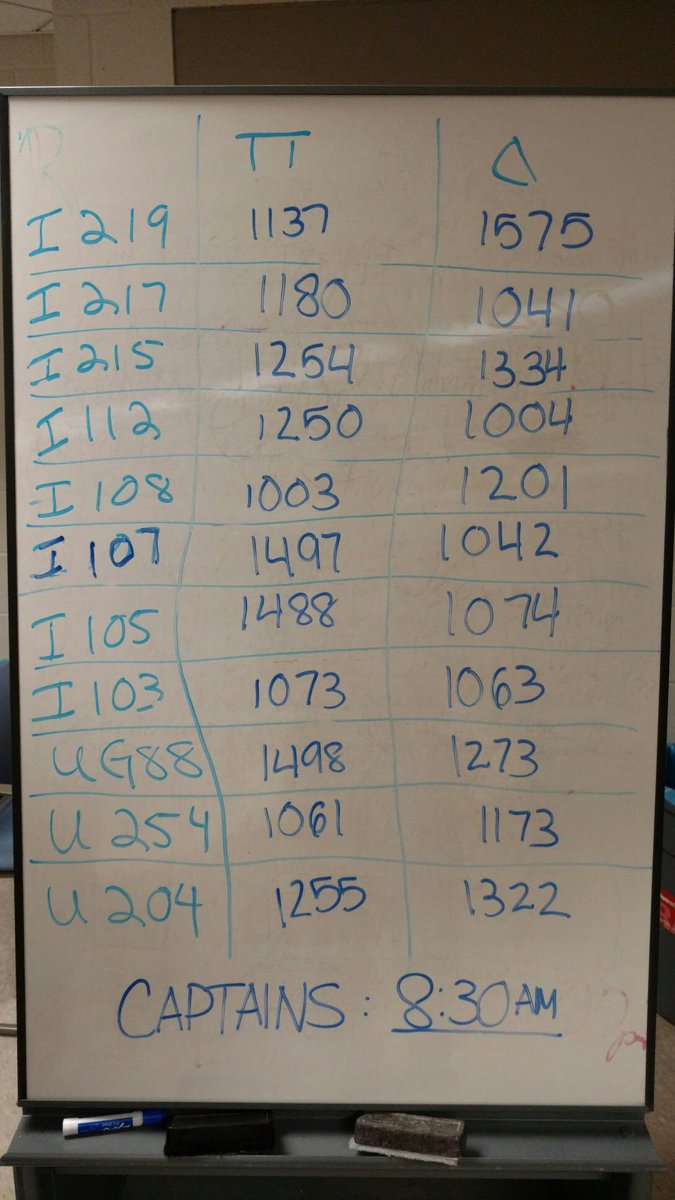 R π Δ
I 219 1137 1575
I 217 1180 1041
I 215 1254 1334
I 112 1250 1004
I 108 1003 1201
I 107 1497 1042
I 105 1488 1074
I 103 1073 1063
UG88 1498 1273
U 254 1061 1173
U 204 1255 1322
CAPTAINS: 8:30AM